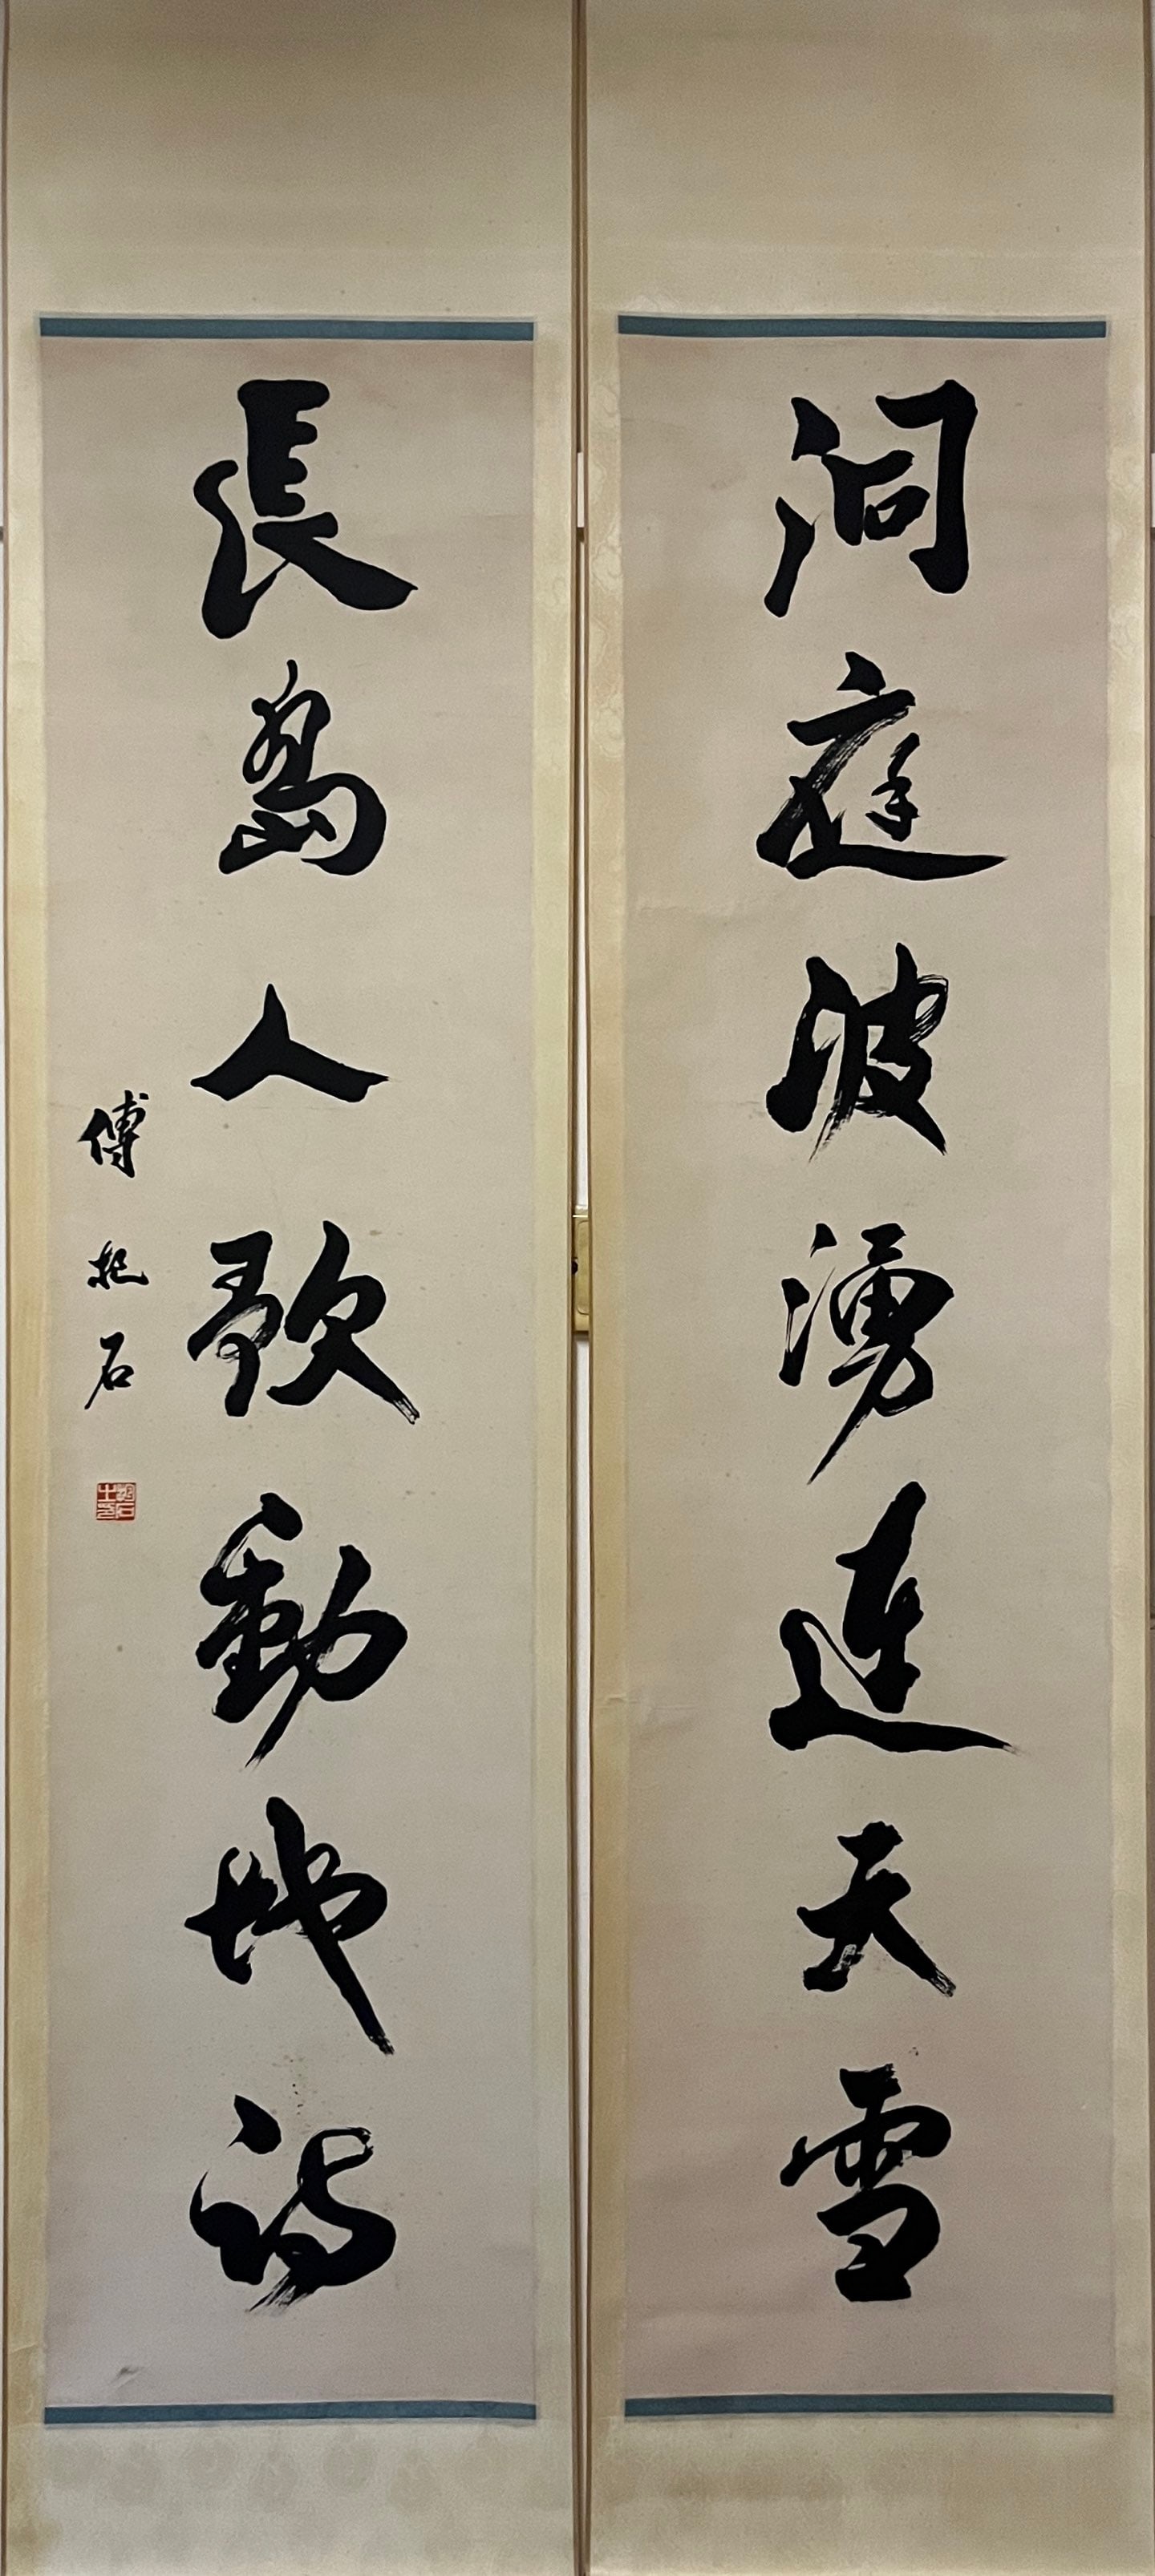 洞庭波湧連天雪
長島人歌動地詩
傅抱石